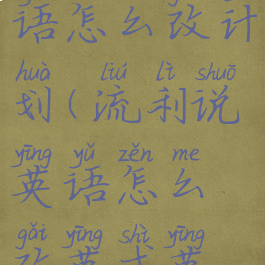 语怎么改计
huà liú lì shuō
划(流利说
yīng yǔ zěn me
英语怎么
gǎi yīng shì yīng
改英式英